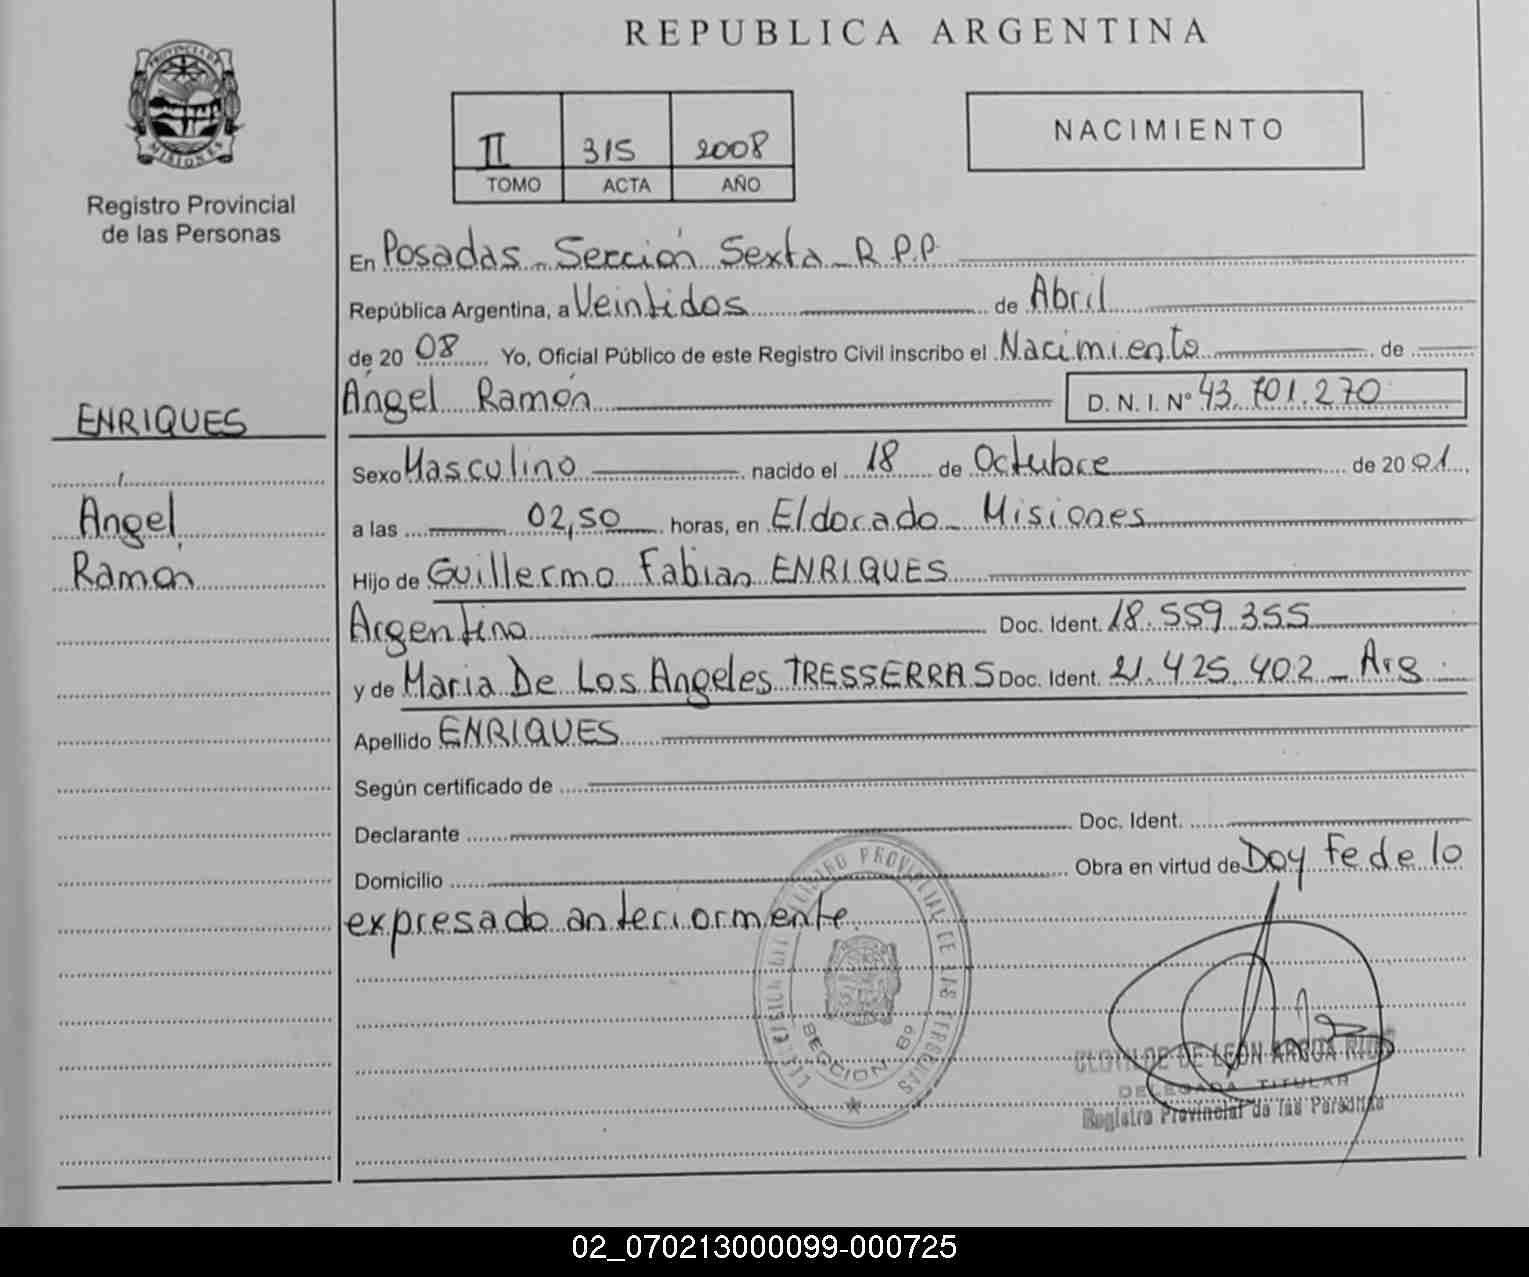 REPUBLICA ARGENTINA
PROVINCIA DE
MISIONES
Registro Provincial
de las Personas
II 315 2008
TOMO ACTA AÑO
NACIMIENTO
En Posadas - Sección Sexta - R.P.P.
República Argentina, a Veintidos de Abril
de 20 08 Yo, Oficial Público de este Registro Civil inscribo el Nacimiento de
Ángel Ramón D. N. I. N° 43.701.270
ENRIQUES
Ángel
Ramón
Sexo Masculino nacido el 18 de Octubre de 20 01
a las 02,50 horas, en Eldorado - Misiones
Hijo de Guillermo Fabian ENRIQUES
Argentino Doc. Ident. 18.559.355
y de Maria De Los Angeles TRESSERRAS Doc. Ident. 21.425.402 - Arg.
Apellido ENRIQUES
Según certificado de
Declarante Doc. Ident.
Domicilio Obra en virtud de Doy Fe de lo
expresado anteriormente.
REGISTRO PROVINCIAL DE LAS PERSONAS
SECCION
DE LEON ARGUA RIOS
DELEGADA TITULAR
Registro Provincial de las Personas
02_070213000099-000725